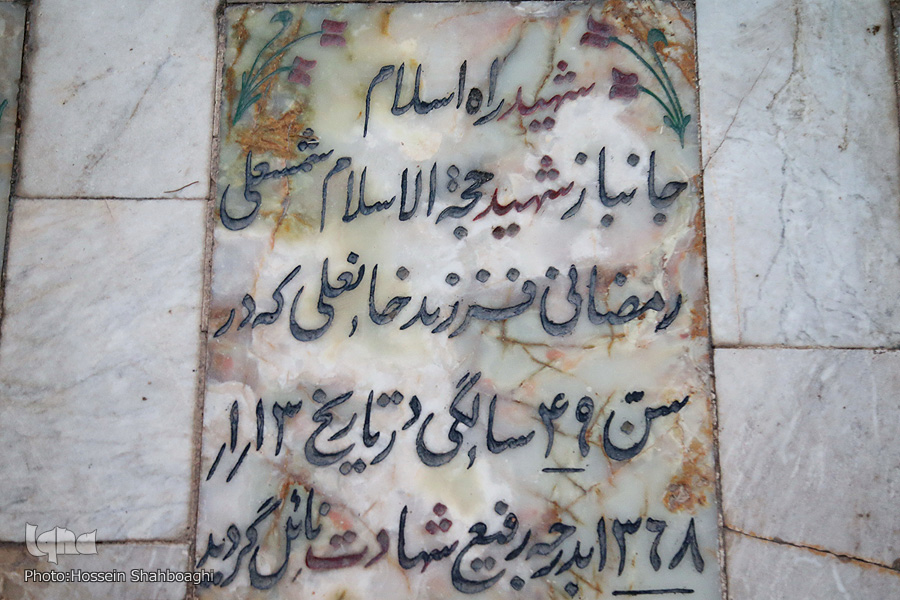 شهید راه اسلام
جانباز شهید حجة الاسلام شمسعلی
رمضانی فرزند خانعلی که در
سن ۴۹ سالگی در تاریخ ۱۳ار۱ر
۱۳۶۸ بدرجه رفیع شهادت نائل گردید
iqna
Photo:Hossein Shahboaghi